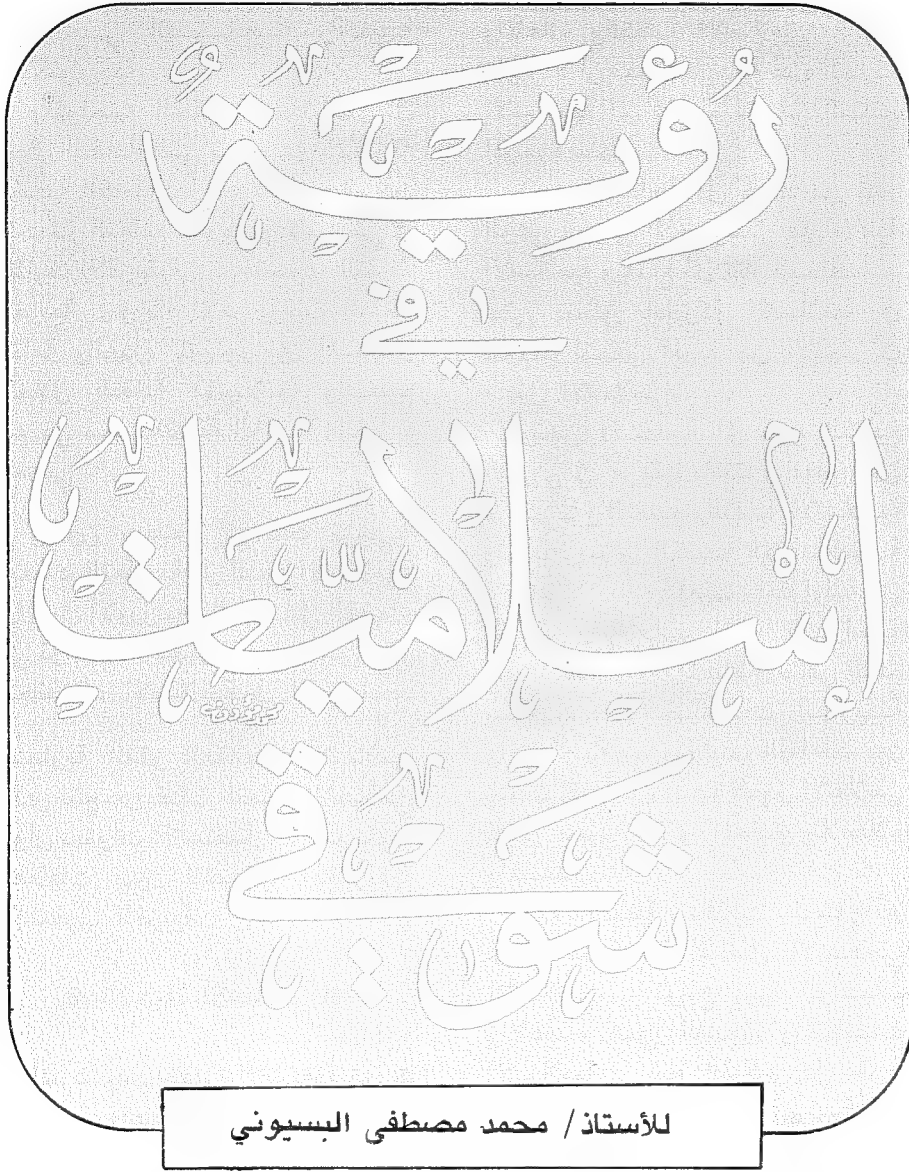 رُؤْيَةٌ
في
إسلاميات
شوقي
للأستاذ/ محمد مصطفى البسيوني